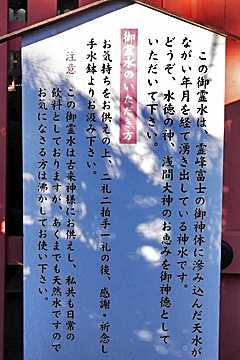 この御霊水は、霊峰富士の御神体に滲み込んだ天水が
ながい年月を経て湧き出している神水です。
どうぞ、水徳の神、浅間大神のお恵みを御神徳として
いただいて下さい。
御霊水のいただき方
お気持ちをお供えの上、二礼二拍手一礼の後、感謝・祈念し
手水鉢よりお汲み下さい。
注意 この御霊水は古来神様にお供し、私共も日常の
飲料としておりますが、あくまでも天然水ですので
お気になさる方は沸かしてお使い下さい。